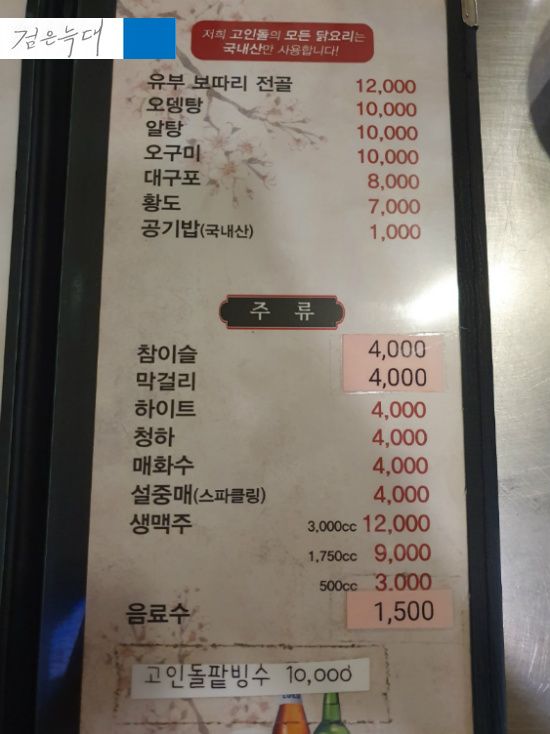 검은늑대
저희 고인돌의 모든 닭요리는
국내산만 사용합니다!
유부 보따리 전골 12,000
오뎅탕 10,000
알탕 10,000
오구미 10,000
대구포 8,000
황도 7,000
공기밥(국내산) 1,000
주 류
참이슬 4,000
막걸리 4,000
하이트 4,000
청하 4,000
매화수 4,000
설중매(스파클링) 4,000
생맥주 3,000cc 12,000
1,750cc 9,000
500cc 3,000
음료수 1,500
고인돌팥빙수 10,000